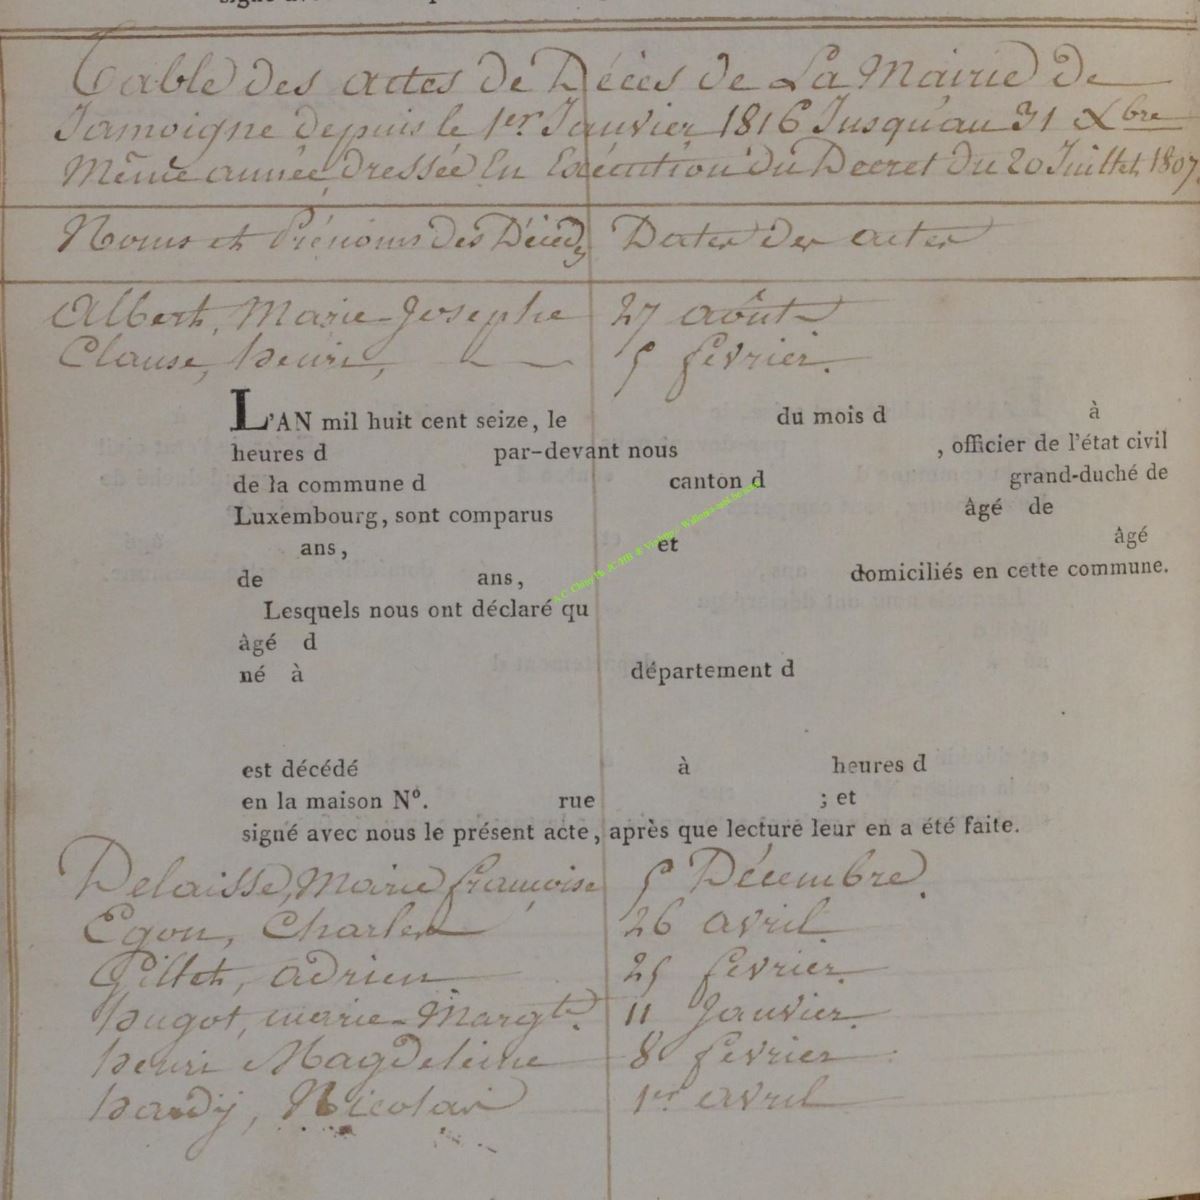 Table des actes de Décès de La Mairie de
Jamoigne depuis le 1er Janvier 1816 Jusqu'au 31 Xbre
Même année, dressée En Exécution du Decret du 20 Juillet 1807.
Noms et Prénoms des Décédés Dates des actes
Albert, Marie-Josephe 27 août
Clause, henri, 5 fevrier.
L'AN mil huit cent seize, le du mois d à
heures d par-devant nous , officier de l'état civil
de la commune d canton d grand-duché de
Luxembourg, sont comparus âgé de
ans, et âgé
de ans, domiciliés en cette commune.
Lesquels nous ont déclaré qu
âgé d
né à département d
est décédé à heures d
en la maison Nº. rue ; et
signé avec nous le présent acte, après que lecture leur en a été faite.
Delaisse, Marie françoise 5 Décembre.
Egon, Charles 26 avril
Gillet, adrien 25 fevrier
hugot, marie-Margte. 11 Janvier.
henri Magdeleine 8 fevrier
hardy, Nicolas 1er avril